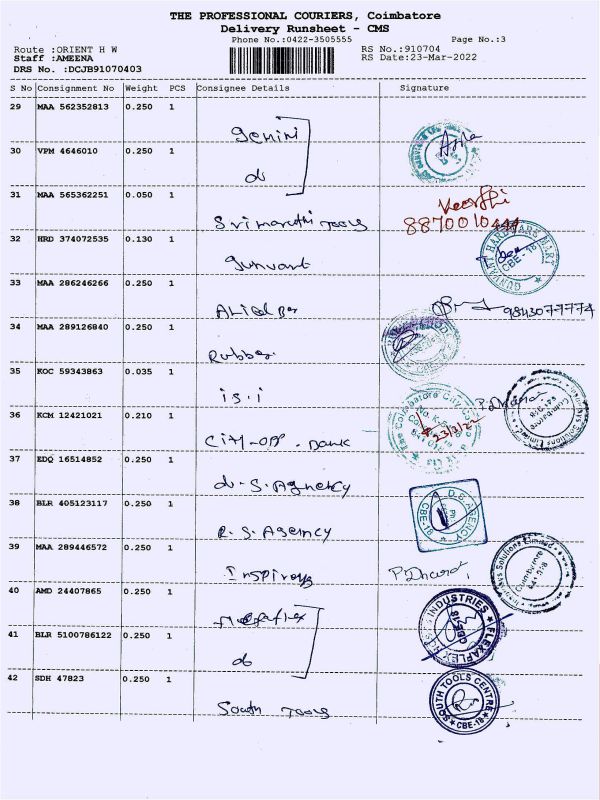 THE PROFESSIONAL COURIERS, Coimbatore
Delivery Runsheet - CMS
Phone No.:0422-3505555 Page No.:3
Route :ORIENT H W RS No.:910704
Staff :AMEENA RS Date:23-Mar-2022
DRS No. :DCJB91070403
S No Consignment No Weight PCS Consignee Details Signature
29 MAA 562352813 0.250 1
Gemini
30 VPM 4646010 0.250 1
do
31 MAA 565362251 0.050 1
Sri maruthi Tools 8870010444
32 HRD 374072535 0.130 1
Gunvant GUNVANT HARDWARE MART CBE-18
33 MAA 286246266 0.250 1
9843077774
34 MAA 289126840 0.250 1
Rubber
35 KOC 59343863 0.035 1
i s. i
36 KCM 12421021 0.210 1
City-OPP-Bank The Coimbatore City 23/3/22
37 EDQ 16514852 0.250 1
d. S. Agency
38 BLR 405123117 0.250 1 D.S. AGENCY CBE-18
R. S. Agency
39 MAA 289446572 0.250 1 Solutions Limited Coimbatore
Inspirays P. Dharat
40 AMD 24407865 0.250 1
FLEXAPLEX INDUSTRIES CBE-18
41 BLR 5100786122 0.250 1
do
42 SDH 47823 0.250 1
South Tools SOUTH TOOLS CENTRE CBE-18